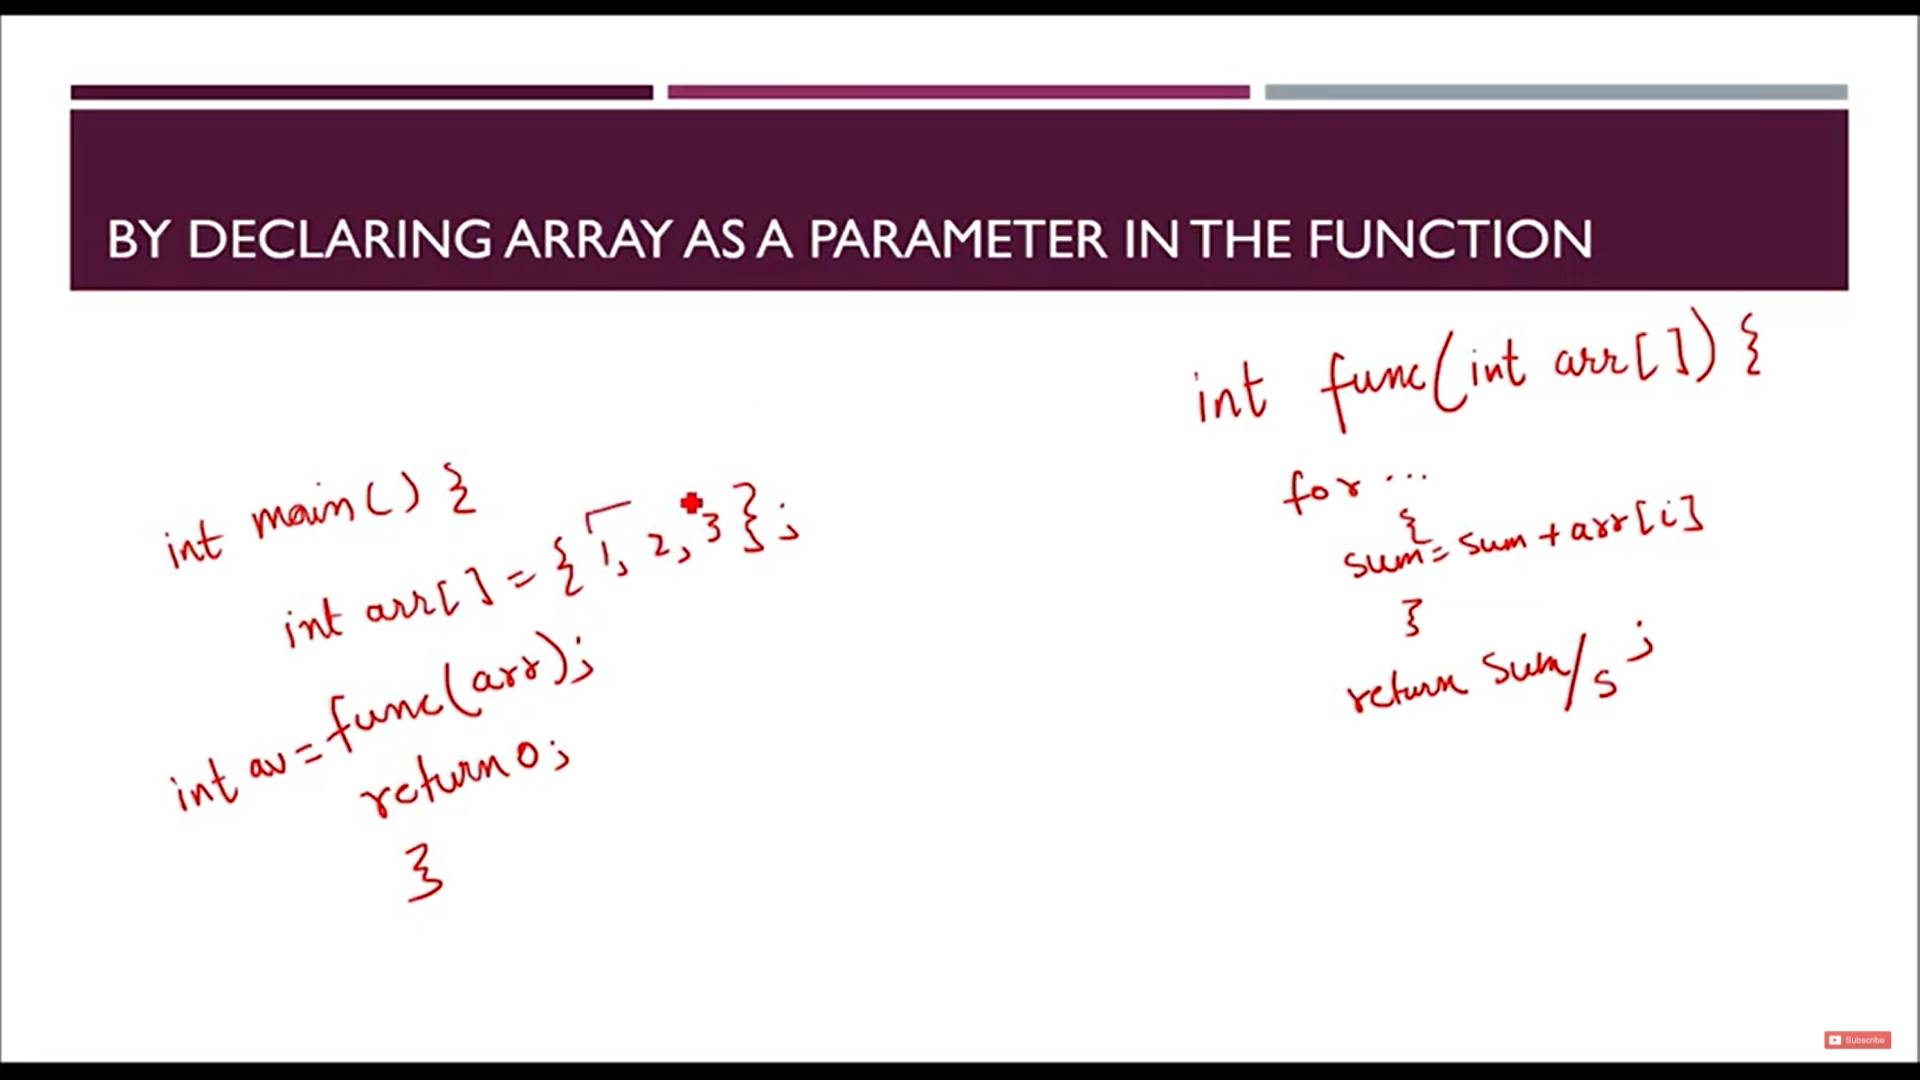 BY DECLARING ARRAY AS A PARAMETER IN THE FUNCTION
int main() {
int arr[] = {1, 2, 3};
int av = func(arr);
return 0;
}
int func(int arr[]) {
for ...
{
sum = sum + arr[i]
}
return sum/5;
Subscribe